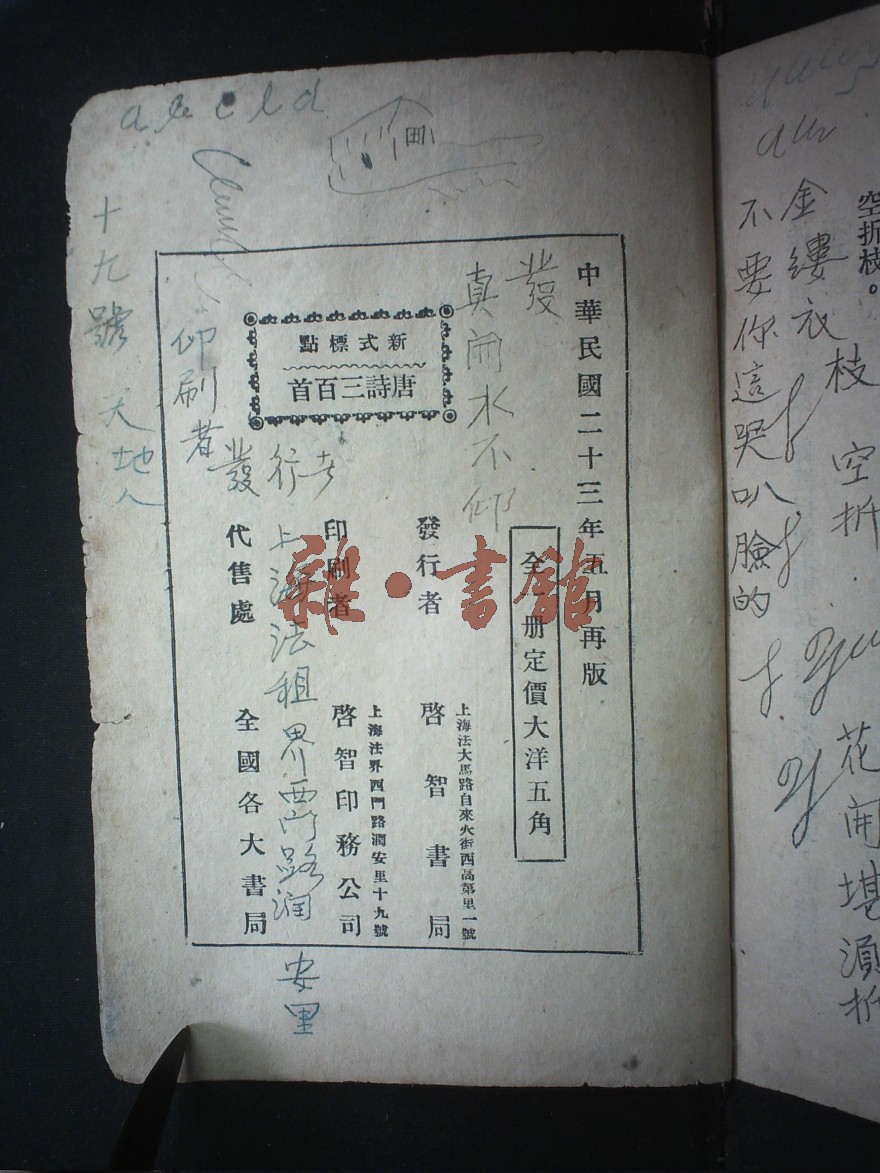 空折枝。
金縷衣
不要你這哭叭臉的
枝 空折
花開堪須折
a
中華民國二十三年五月再版
全一册定價大洋五角
發行者
上海法大馬路自來火街西高第里一號
啓智書局
印刷者
上海法界西門路潤安里十九號
啓智印務公司
代售處
全國各大書局
新式標點
唐詩三百首
發
真開水不仰
發行者
上海法租界西门路润安里
仰刷者
十九號 天地人
雜·書館